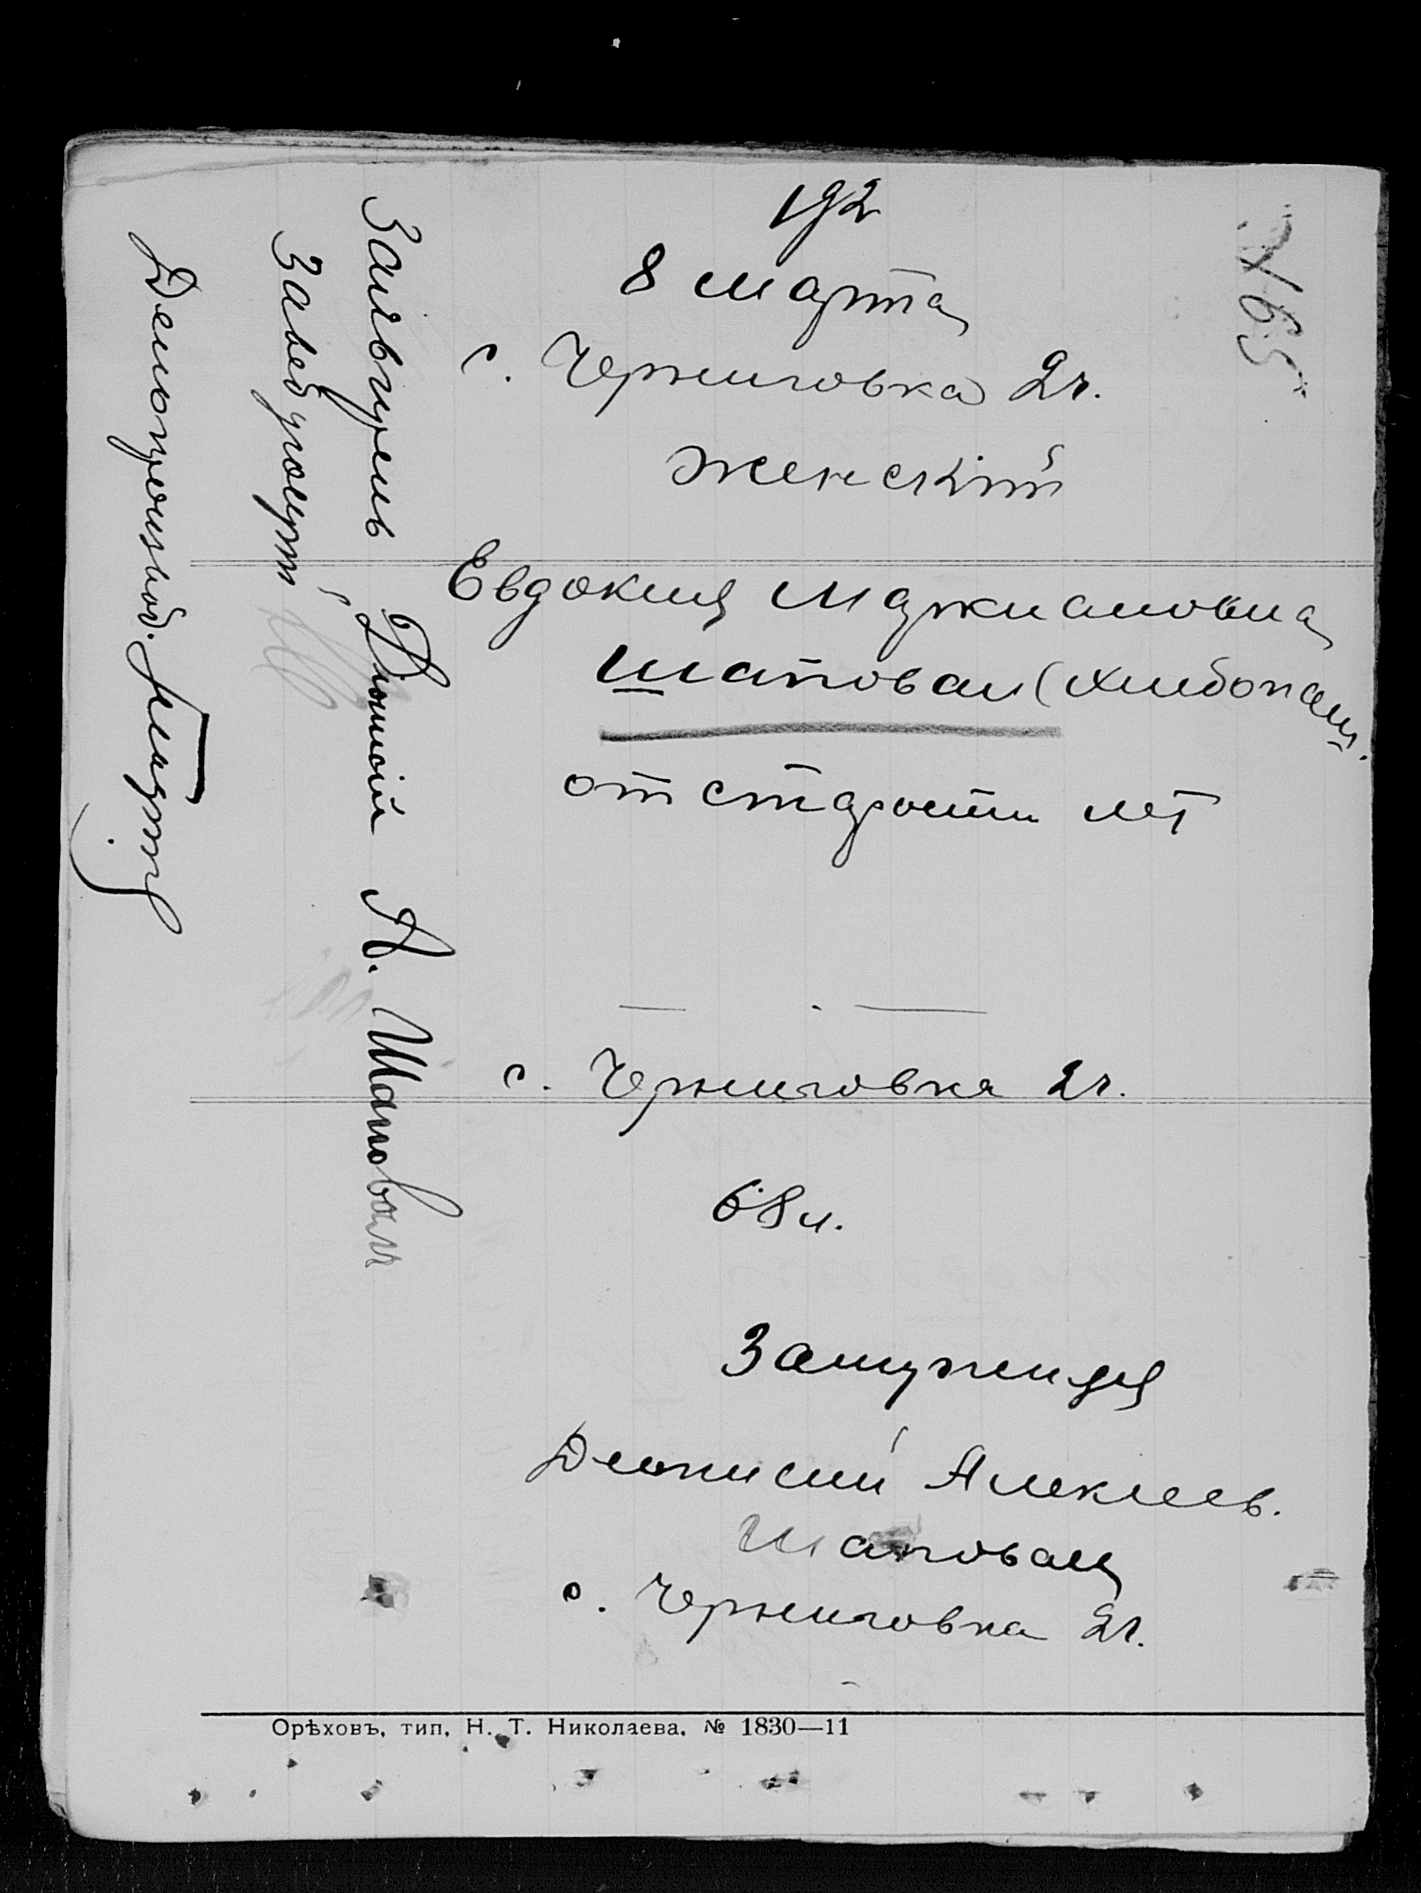 192
8 марта
с. Черниговка 2ч.
женский
Евдокия Маркиановна
Шаповал (хлебопаш.
от старости лет
с. Черниговка 2ч.
68 л.
Замужняя
Дионисий Алексеев.
Шаповал
с. Черниговка 2ч.
Заявитель Дионисий А. Шаповал
Заведующий
Делопроизвод.
№ 65
Орѣховъ, тип. Н. Т. Николаева. № 1830—11